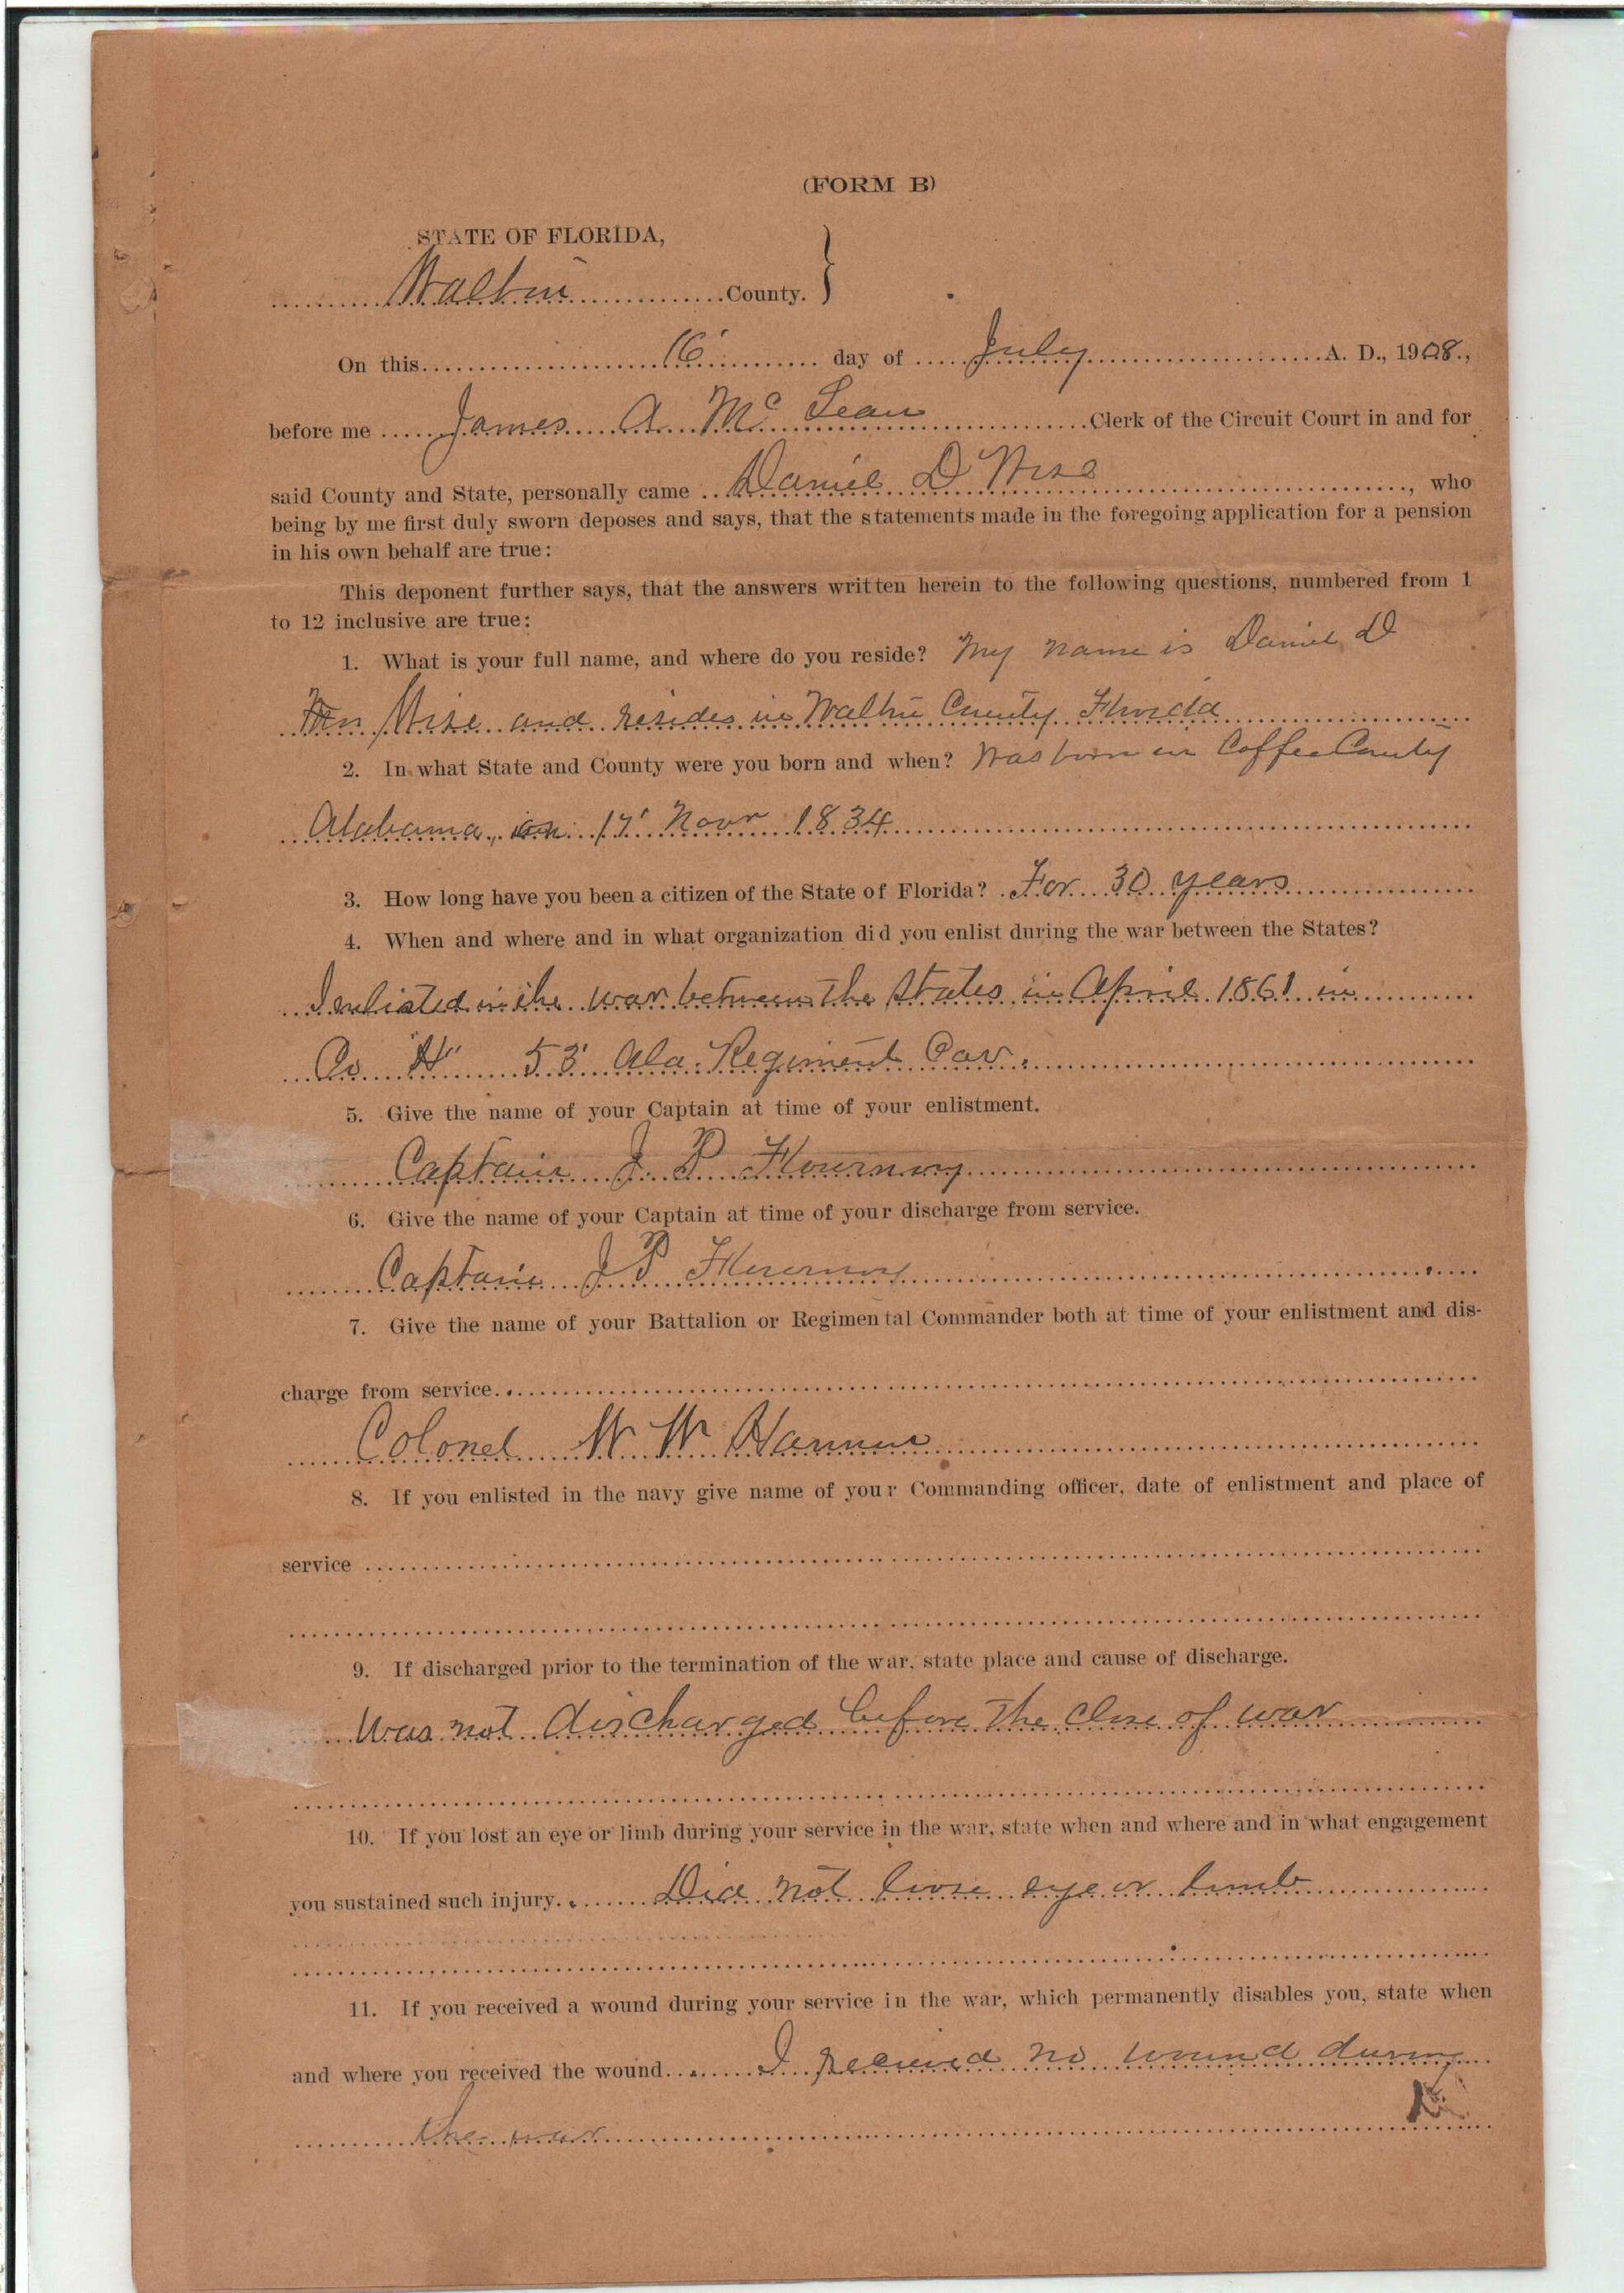 (FORM B)
STATE OF FLORIDA,
Walton County.
On this 16' day of July A. D., 1908.,
before me James A. Mc Lean Clerk of the Circuit Court in and for
said County and State, personally came Daniel D Wise, who
being by me first duly sworn deposes and says, that the statements made in the foregoing application for a pension
in his own behalf are true:
This deponent further says, that the answers written herein to the following questions, numbered from 1
to 12 inclusive are true:
1. What is your full name, and where do you reside? My name is Daniel D
Wise and resides in Walton County Florida
2. In what State and County were you born and when? Was born in Coffee County
Alabama, on 17' Novr 1834
3. How long have you been a citizen of the State of Florida? For 30 years
4. When and where and in what organization did you enlist during the war between the States?
I enlisted in the war between the States in April 1861 in
Co "H" 53' Ala. Regiment Cav.
5. Give the name of your Captain at time of your enlistment.
Captain J. P. Flournoy
6. Give the name of your Captain at time of your discharge from service.
Captain J P Flournoy
7. Give the name of your Battalion or Regimental Commander both at time of your enlistment and dis-
charge from service.
Colonel W W Hannon
8. If you enlisted in the navy give name of your Commanding officer, date of enlistment and place of
service
9. If discharged prior to the termination of the war, state place and cause of discharge.
Was not discharged before the close of war
10. If you lost an eye or limb during your service in the war, state when and where and in what engagement
you sustained such injury. Did not loose eye or limb
11. If you received a wound during your service in the war, which permanently disables you, state when
and where you received the wound. I received no wound during
the war